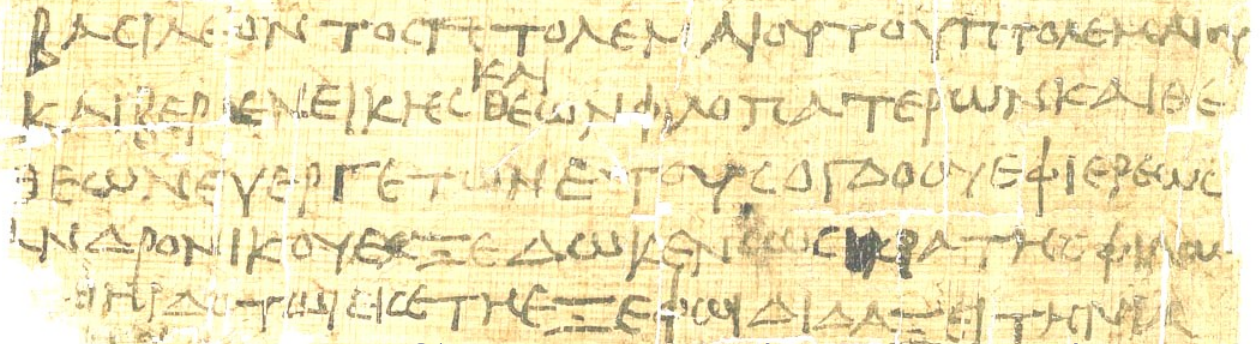 ΒΑϹΙΛΕΟΝΤΟϹ ΠΤΟΛΕΜΑΙΟΥ ΤΟΥ ΠΤΟΛΕΜΑΙΟΥ
ΚΑΙ
ΚΑΙ ΒΕΡΕΝΕΙΚΗϹ ΘΕΩΝ ΦΙΛΟΠΑΤΕΡΩΝ ΚΑΙ ΘΕ
ΘΕΩΝ ΕΥΕΡΓΕΤΩΝ ΕΤΟΥϹ ΟΓΔΟΟΥ ΕΦ ΙΕΡΕΩϹ
ΑΝΔΡΟΝΙΚΟΥ ΕΞΕΔΩΚΕΝ
ΕΤΗ ΕΞ ΕΦ ΩΙ ΔΙΔΑΞΕΙ ΤΗΝ ΙΑ